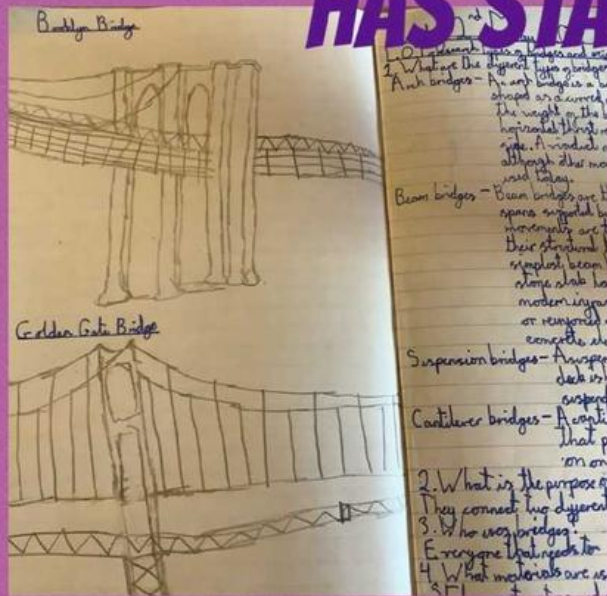 HAS STA
Brooklyn Bridge
Golden Gate Bridge
nd
L.O. research types of bridges and
1. What are the different types of bridges
Arch bridges – An arch bridge is a b
shaped as a curved
the weight of the b
horizontal thrust
side. A viaduct
although other mo
used today.
Beam bridges – Beam bridges are t
spans supported b
movements are
their structural
simplest beam
stone slab
modern
or reinforced
concrete
Suspension bridges – A suspen
deck is
suspen
Cantilever bridges – A canti
that p
on on
2. What is the purpose o
They connect two different
3. Who uses bridges.
Everyone that needs to
4. What materials are u